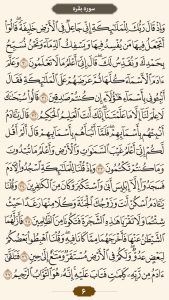 سوره بقره
وَإِذْ قَالَ رَبُّكَ لِلْمَلَٰٓئِكَةِ إِنِّى جَاعِلٌ فِى ٱلْأَرْضِ خَلِيفَةً قَالُوٓا۟
أَتَجْعَلُ فِيهَا مَن يُفْسِدُ فِيهَا وَيَسْفِكُ ٱلدِّمَآءَ وَنَحْنُ نُسَبِّحُ
بِحَمْدِكَ وَنُقَدِّسُ لَكَ قَالَ إِنِّىٓ أَعْلَمُ مَا لَا تَعْلَمُونَ ٣٠ وَعَلَّمَ
ءَادَمَ ٱلْأَسْمَآءَ كُلَّهَا ثُمَّ عَرَضَهُمْ عَلَى ٱلْمَلَٰٓئِكَةِ فَقَالَ
أَنۢبِـُٔونِى بِأَسْمَآءِ هَٰٓؤُلَآءِ إِن كُنتُمْ صَٰدِقِينَ ٣١ قَالُوا۟ سُبْحَٰنَكَ
لَا عِلْمَ لَنَآ إِلَّا مَا عَلَّمْتَنَآ إِنَّكَ أَنتَ ٱلْعَلِيمُ ٱلْحَكِيمُ ٣٢ قَالَ يَٰٓـَٔادَمُ
أَنۢبِئْهُم بِأَسْمَآئِهِمْ فَلَمَّآ أَنۢبَأَهُم بِأَسْمَآئِهِمْ قَالَ أَلَمْ أَقُل
لَّكُمْ إِنِّىٓ أَعْلَمُ غَيْبَ ٱلسَّمَٰوَٰتِ وَٱلْأَرْضِ وَأَعْلَمُ مَا تُبْدُونَ
وَمَا كُنتُمْ تَكْتُمُونَ ٣٣ وَإِذْ قُلْنَا لِلْمَلَٰٓئِكَةِ ٱسْجُدُوا۟ لِـَٔادَمَ
فَسَجَدُوٓا۟ إِلَّآ إِبْلِيسَ أَبَىٰ وَٱسْتَكْبَرَ وَكَانَ مِنَ ٱلْكَٰفِرِينَ ٣٤ وَقُلْنَا
يَٰٓـَٔادَمُ ٱسْكُنْ أَنتَ وَزَوْجُكَ ٱلْجَنَّةَ وَكُلَا مِنْهَا رَغَدًا حَيْثُ
شِئْتُمَا وَلَا تَقْرَبَا هَٰذِهِ ٱلشَّجَرَةَ فَتَكُونَا مِنَ ٱلظَّٰلِمِينَ ٣٥ فَأَزَلَّهُمَا
ٱلشَّيْطَٰنُ عَنْهَا فَأَخْرَجَهُمَا مِمَّا كَانَا فِيهِ وَقُلْنَا ٱهْبِطُوا۟ بَعْضُكُمْ
لِبَعْضٍ عَدُوٌّ وَلَكُمْ فِى ٱلْأَرْضِ مُسْتَقَرٌّ وَمَتَٰعٌ إِلَىٰ حِينٍ ٣٦ فَتَلَقَّىٰٓ
ءَادَمُ مِن رَّبِّهِۦ كَلِمَٰتٍ فَتَابَ عَلَيْهِ إِنَّهُۥ هُوَ ٱلتَّوَّابُ ٱلرَّحِيمُ ٣٧
۶